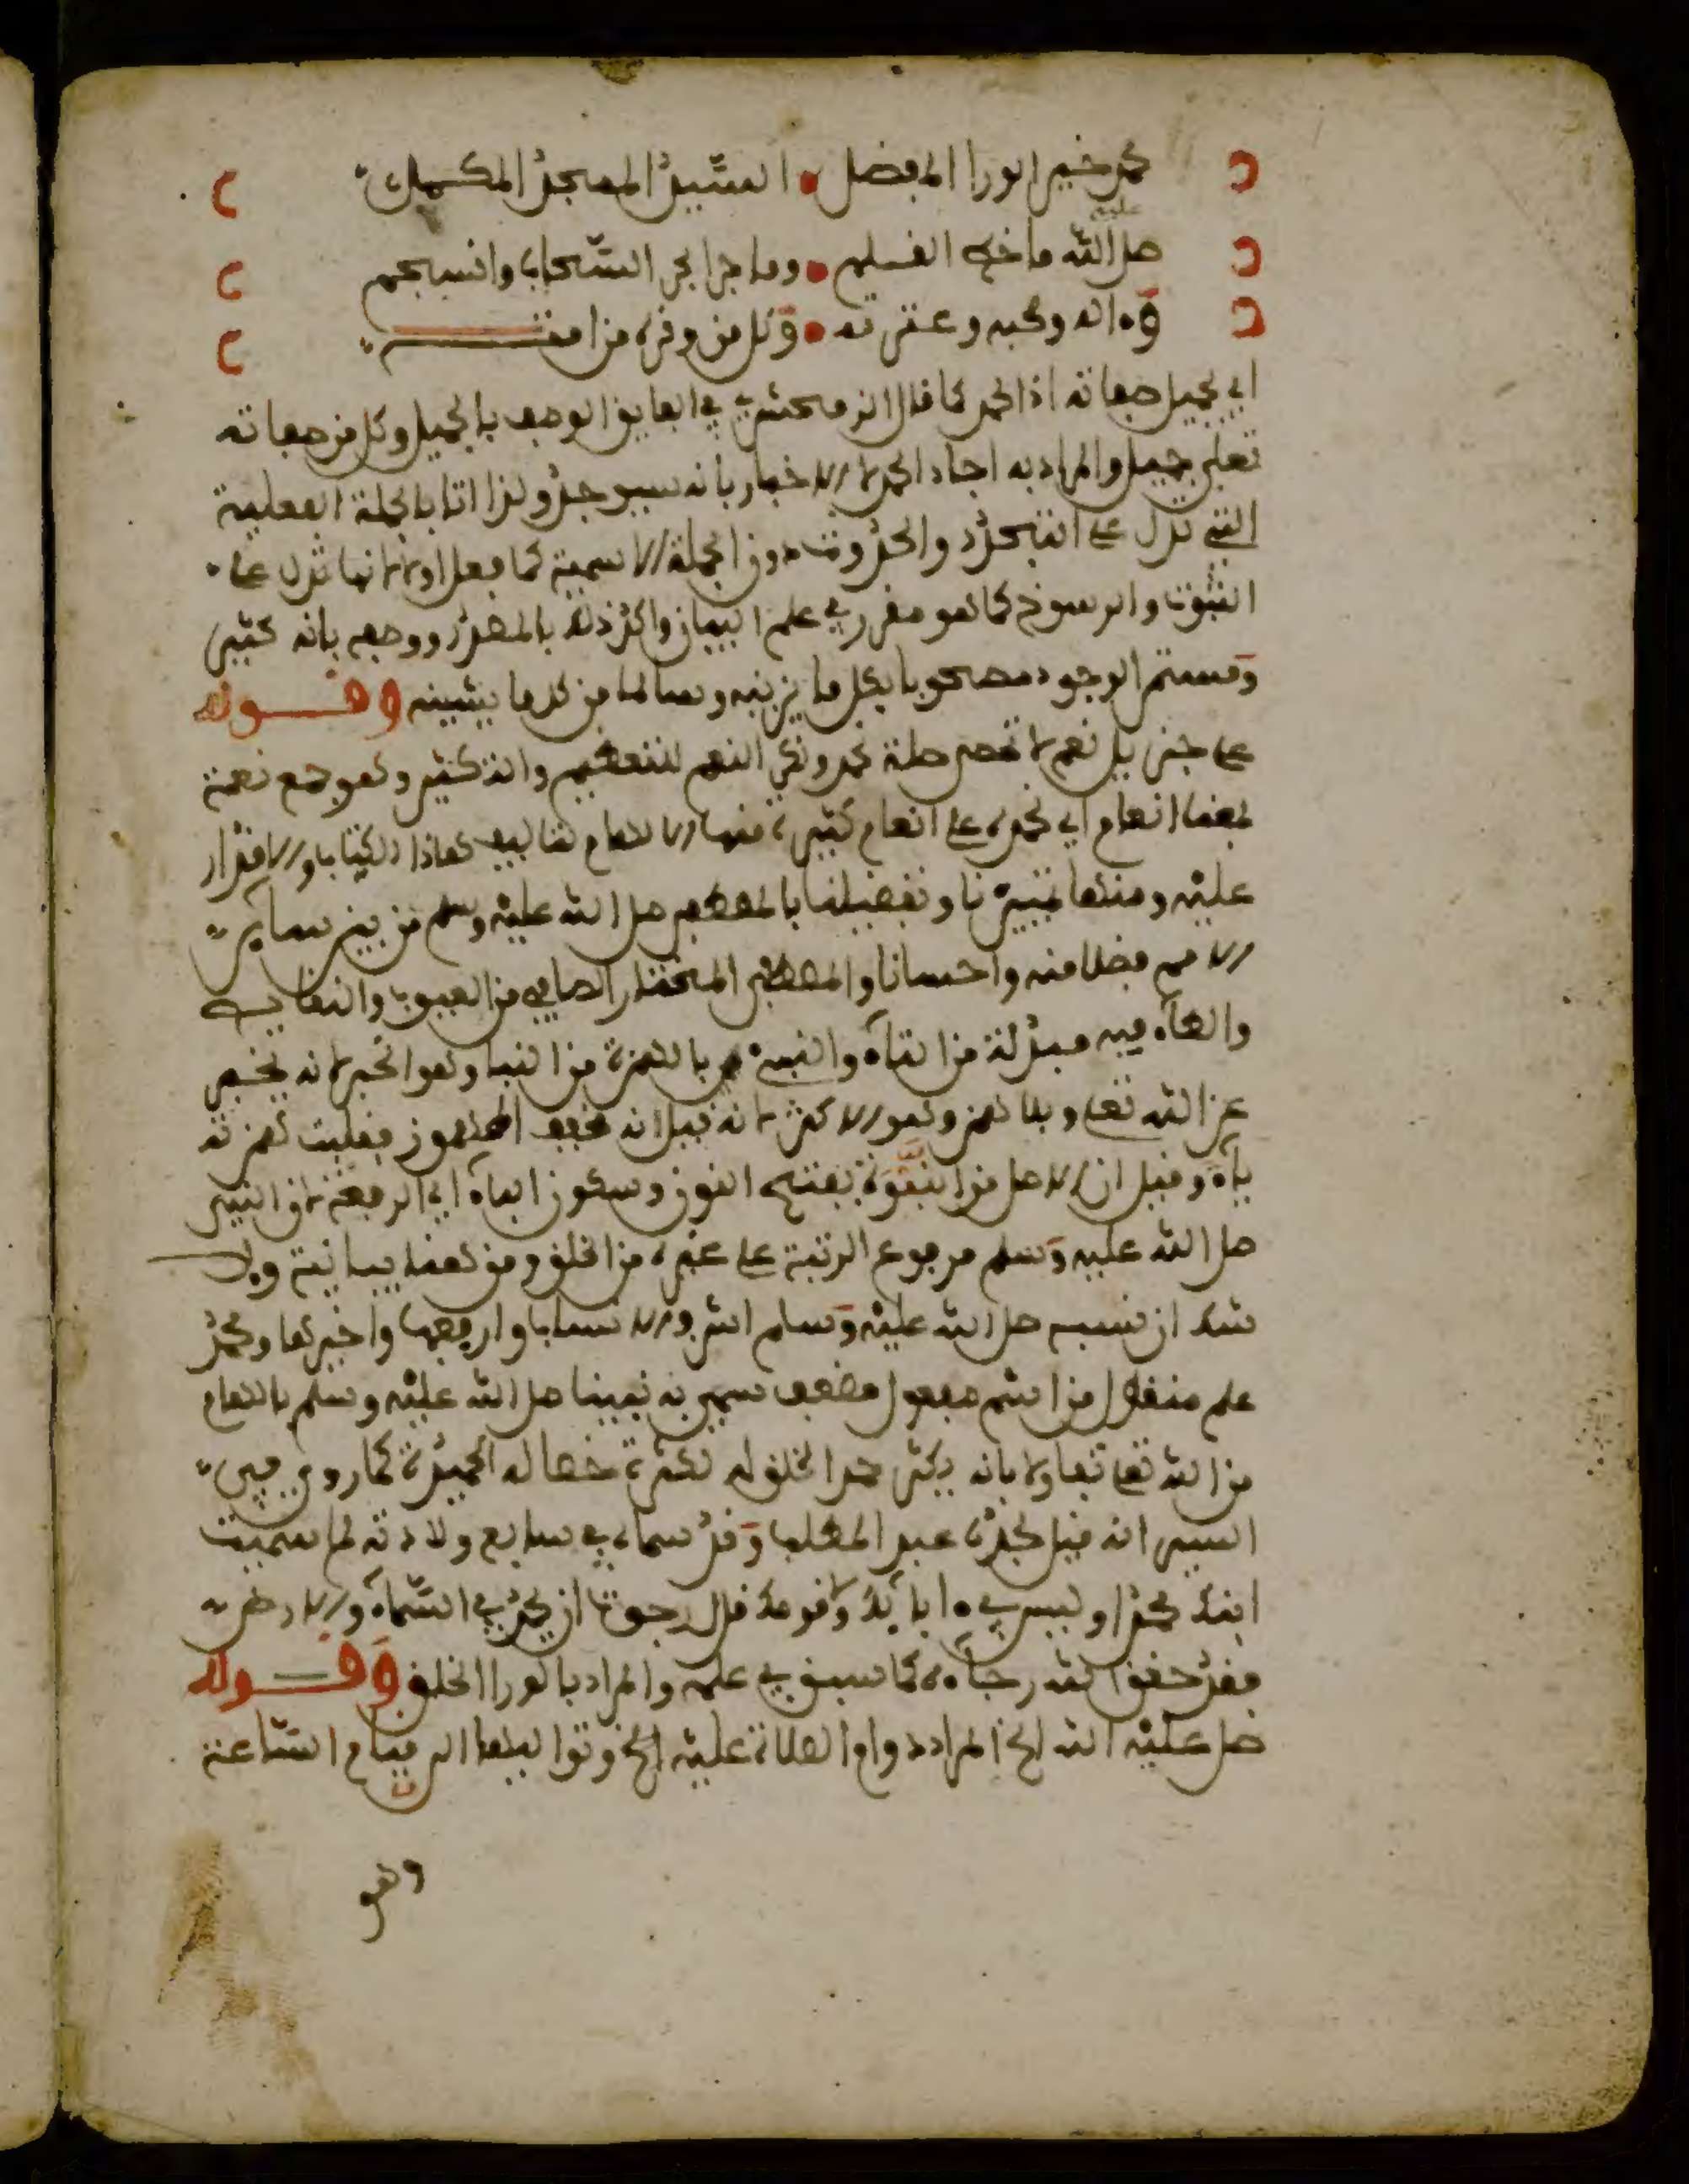 محمد خير الورا المفضل السيد الممجد المكمل
صل عليه الله ما خط القلم وما جرا بحر السحاب وانسجم
وءاله وصحبه وعترته وكل من وقره من امته
اي بجميل صفاته اذ الحمد كما قال الزمخشري في الفايق الوصف بالجميل وكل من صفاته
تعلى جميل والمراد به اجاد الحمد لا الاخبار بانه سيوجد ولذا اتا بالجملة الفعلية
التي تدل على التجدد والحدوث دون الجملة الاسمية كما فعل اولا لانها تدل على
الثبوت والرسوخ كما هو مقرر في علم البيان واكد ذلك بالمصدر ووصفه بانه كثير
ومستمر الوجود مصحوبا بكل ما يزينه وسالما من كل ما يشينه وقوله
على جزيل نعم لا تحصر صلة نحمد ونكر النعم للتعظيم والتكثير وهو جمع نعمة
بمعنا انعام اي نحمده على انعام كثيرة منها الالهام لتاليف هاذا الكتاب والاقدار
عليه ومنها تمييزنا وتفضيلنا بالمصطفى صل الله عليه وسلم من بين ساير
الامم فضلا منه واحسانا والمصطفى المختار الصافي من العيوب والنقايص
والطاء فيه مبدلة من التاء والنبيء بالهمزة من النبا وهو الخبر لانه يخبر
عن الله تعلى وبلا همز وهو الاكثر لانه قيل انه مخفف المهموز فقلبت همزته
ياء وقيل ان الاصل من النبوة بفتح النون وسكون الباء اي الرفعة لان النبي
صل الله عليه وسلم مرفوع الرتبة على غيره من الخلق ومن هنا بيانية ولا
شك ان نسبه صل الله عليه وسلم اشرف الانساب وارفعها واخيرها ومحمد
علم منقول من اسم مفعول مضعف سمي به نبينا صل الله عليه وسلم بالهام
من الله تعلى تفاولا بانه يكثر حمد الخلق له لكثرة خصاله الحميدة كما روي في
السير انه قيل لجده عبد المطلب وقد سماه في سابع ولادته لم سميت
ابنك محمدا وليس في ءابايك ولا قومك قال رجوت ان يحمد في السماء والارض
فقد حقق الله رجاءه كما سبق في علمه والمراد بالورا الخلق وقوله
صل عليه الله الخ المراد دوام الصلاة عليه الخ وتواليها الى قيام الساعة
وهو